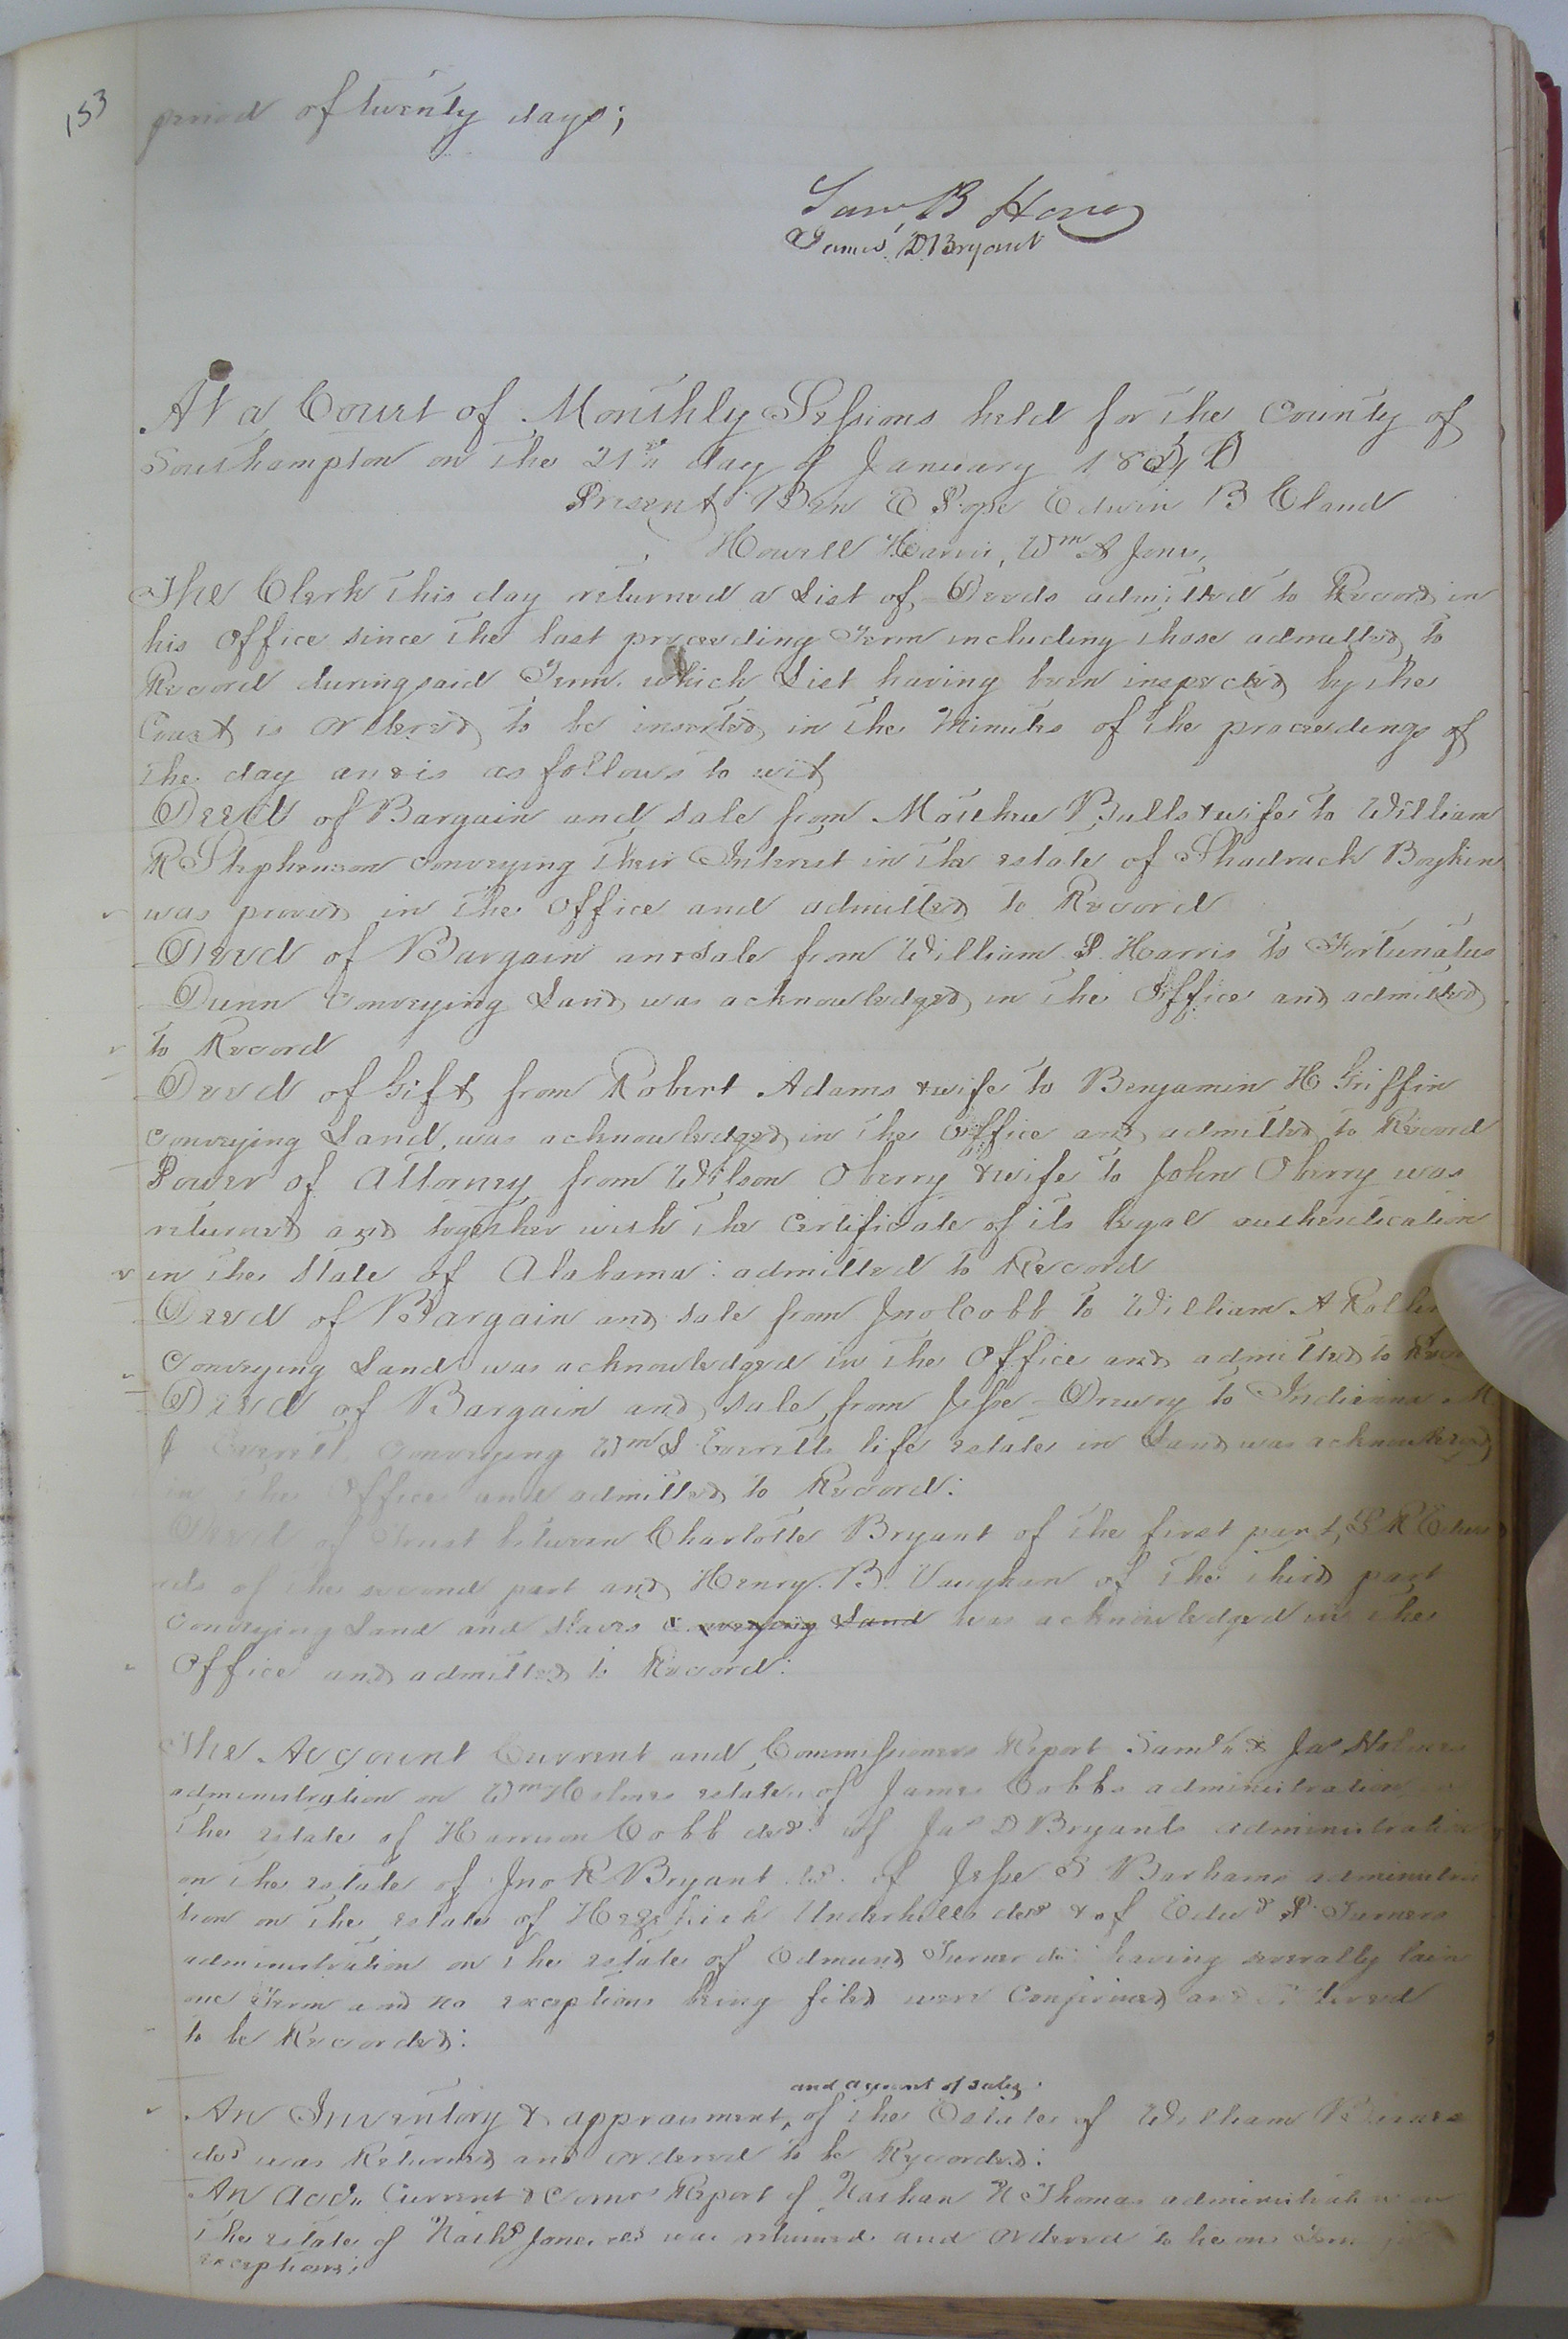 153
period of twenty days;
James D Bryant
At a Court of Monthly Sessions held for the County of
Southampton on the 21st day of January 18
Present Ben E Pope Edwin B Claud
Howell Harris, Wm A Jones,
The Clerk this day returned a List of Deeds admitted to Record in
his office since the last preceeding Term including those admitted to
Record during said Term. which List having been inspected by the
Court is Ordered to be inserted in the Minutes of the proceedings of
the day and is as follows to wit
Deed of Bargain and sale from Matthew Butts & wife to William
R Stephenson conveying their Interest in the estate of Shadrack Boykin
was proved in the Office and admitted to Record
Deed of Bargain and sale from William P. Harris to Fortunatus
Dunn conveying Land was acknowledged in the Office and admitted
to Record
Deed of Gift from Robert Adams & wife to Benjamin H Griffin
conveying Land, was acknowledged in the Office and admitted to Record
Power of Attorney from Wilson Oberry & wife to John Oberry was
returned and together with the Certificate of its legal authentication
in the State of Alabama: admitted to Record
Deed of Bargain and sale from Jno Cobb to William A
Conveying Land was acknowledged in the Office and admitted to
Deed of Bargain and sale from Jesse Drewry to Indianna M
J Everett conveying Wm S Everetts life estate in Land was acknowledged
in the Office and admitted to Record:
Deed of Trust between Charlotte Bryant of the first part, S R Edwa
rds of the second part and Henry. B. Vaughan of the third part
conveying Land and Slaves conveying Land was acknowledged in the
Office and admitted to Record:
The Account Current and Commissioners Report Saml & Jas Holmes
administration on Wm Holmes estate, of James Cobbs administration
the estate of Harrison Cobb decd: of Jas D Bryants administration
on the estate of Jno R Bryant decd. of Jesse S Barhams administra
tion on the estate of Hezekiah Underhills decd & of Edwd P. Turners
administration on the estate of Edmund Turner dec: having severally lain
one Term and no exceptions being filed were Confirmed and Ordered
to be Recorded:
and account of sales
An Inventory & appraisment, of the Estate of William
decd was Returned and ordered to be Recorded:
An Acct. Current & Comrs Report of Nathan N Thomas administration on
the estate of Jones decd was returned and Ordered to lie one Term for
exceptions;